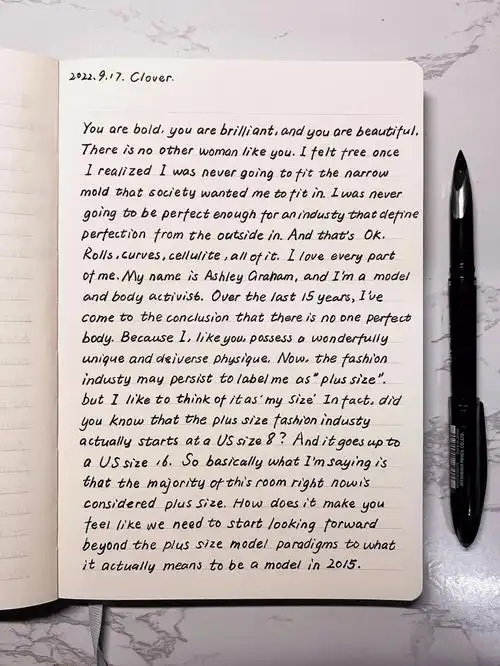 2022.9.17. Clover.
You are bold, you are brilliant, and you are beautiful.
There is no other woman like you. I felt free once
I realized I was never going to fit the narrow
mold that society wanted me to fit in. I was never
going to be perfect enough for an industy that define
perfection from the outside in. And that's OK.
Rolls, curves, cellulite, all of it. I love every part
of me. My name is Ashley Graham, and I'm a model
and body activis6. Over the last 15 years, I've
come to the conclusion that there is no one perfect
body. Because I, like you, possess a wonderfully
unique and deiverse physique. Now, the fashion
industy may persist to label me as "plus size".
but I like to think of it as 'my size' In fact, did
you know that the plus size fashion industy
actually starts at a US size 8? And it goes up to
a US size 16. So basically what I'm saying is
that the majority of this room right now is
considered plus size. How does it make you
feel like we need to start looking forward
beyond the plus size model paradigms to what
it actually means to be a model in 2015.